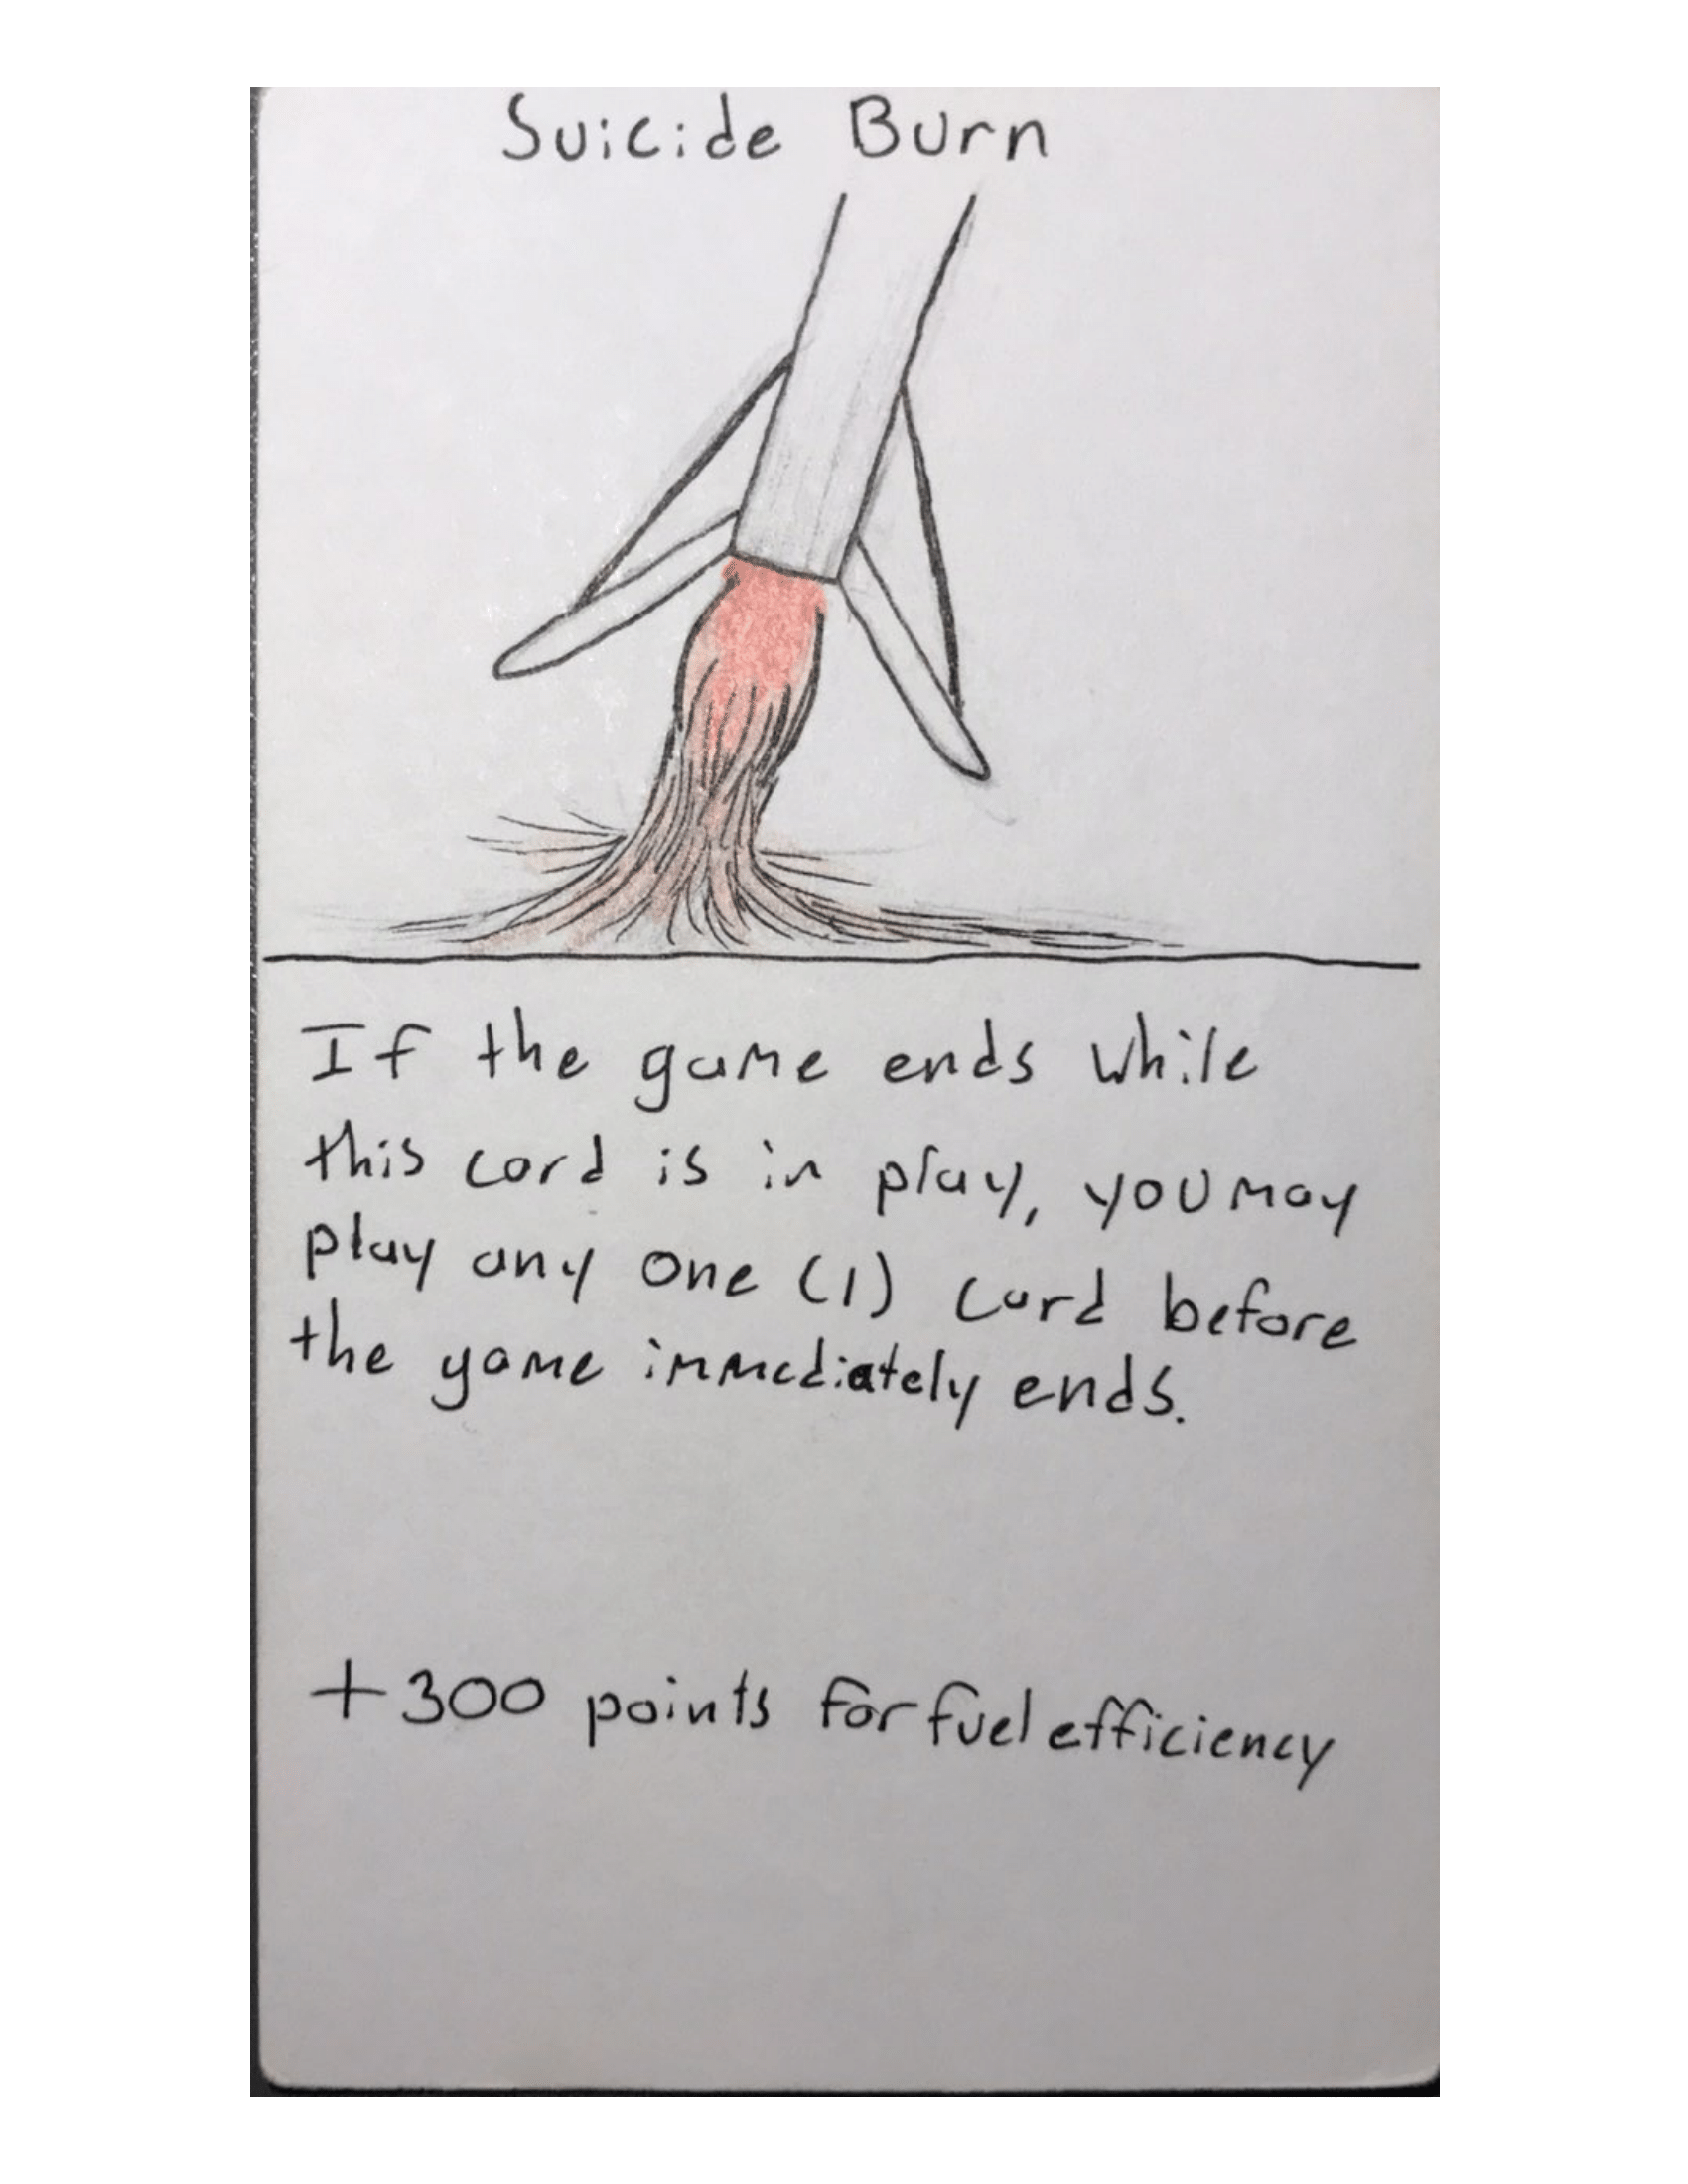 Suicide Burn
If the game ends while
this card is in play, you may
play any one (1) card before
the game immediately ends.
+300 points for fuel efficiency